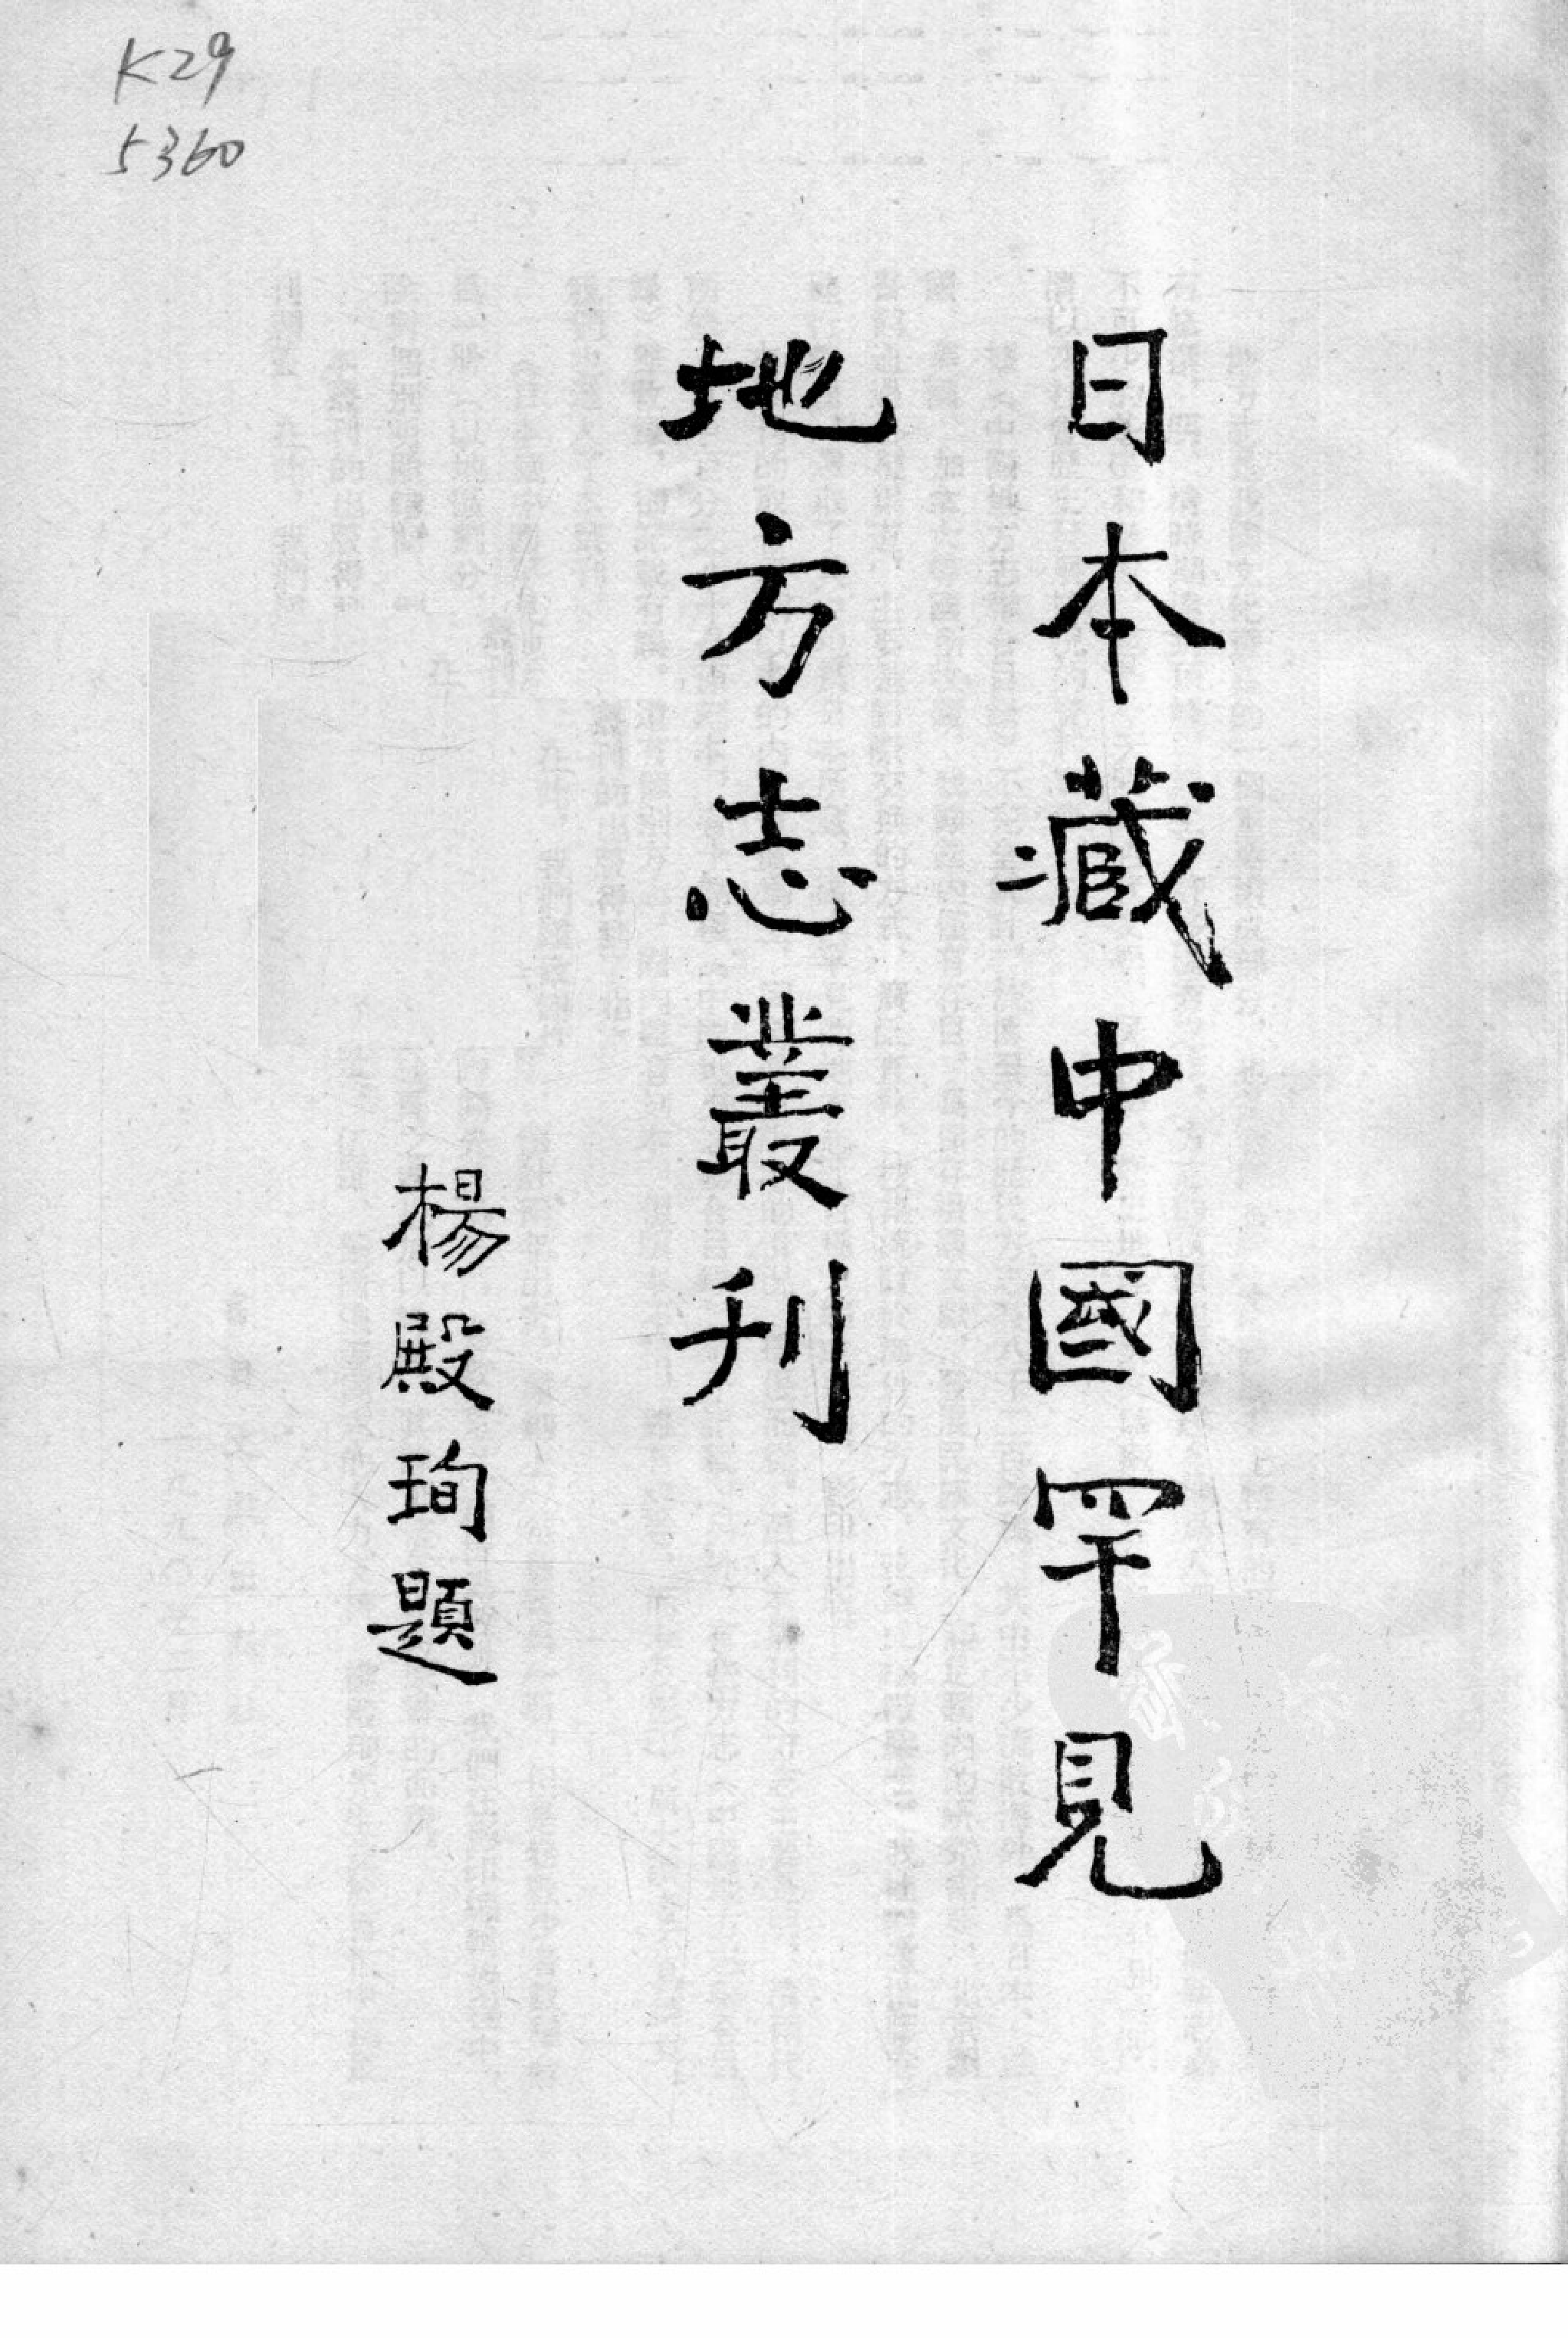 K29
5360
日本藏中國罕見
地方志叢刊
楊殿珣題